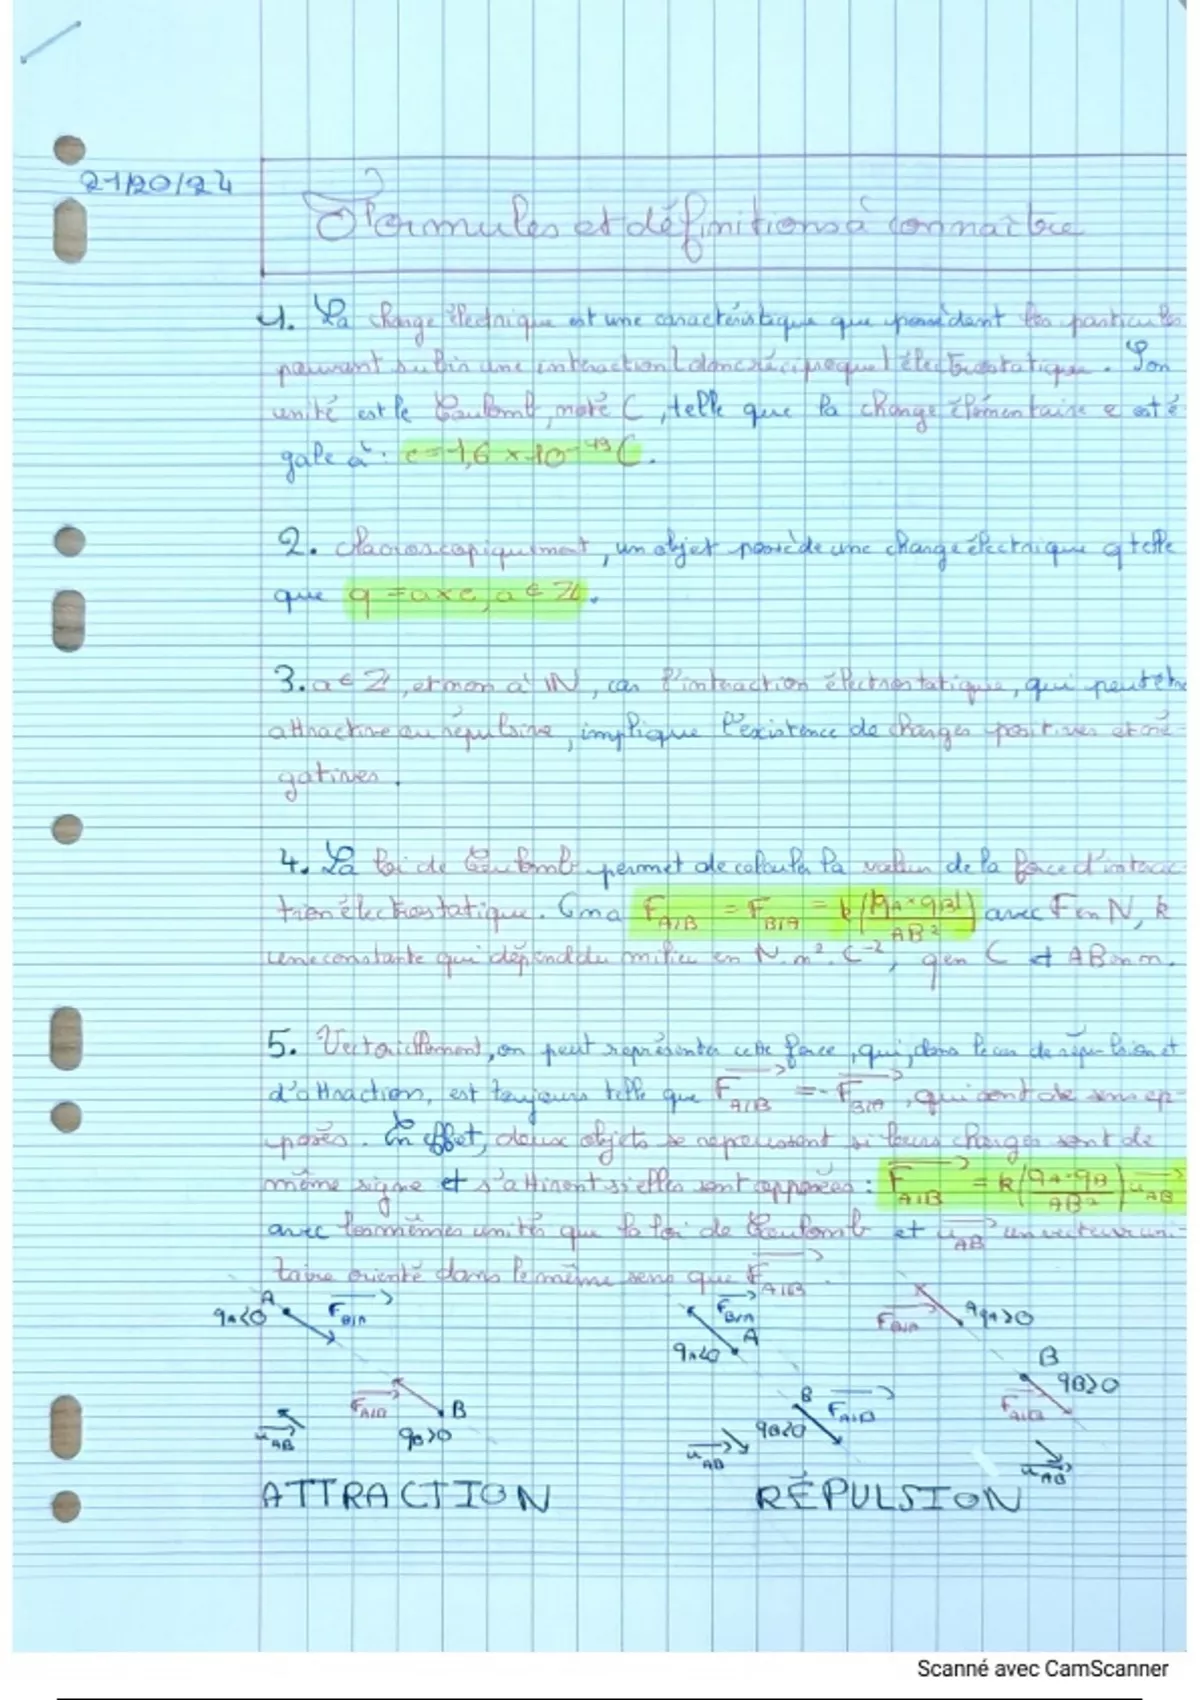 21/10/24
Formules et définitions à connaître
1. La charge électrique est une caractéristique que possèdent les particules
pouvant subir une interaction (donc réciproque) électrostatique. Son
unité est le Coulomb, noté C, telle que la charge élémentaire e est é
gale à : e = 1,6 × 10⁻¹⁹ C.
2. Macroscopiquement, un objet possède une charge électrique q telle
que q = a×e, a ∈ ℤ.
3. a ∈ ℤ, et non à ℕ, car l'interaction électrostatique, qui peut être
attractive ou répulsive, implique l'existence de charges positives et né-
gatives.
4. La loi de Coulomb permet de calculer la valeur de la force d'interac
tion électrostatique. On a F A/B = F B/A = k(|qA×qB|/AB²) avec F en N, k
une constante qui dépend du milieu en N.m².C⁻², q en C et AB en m.
5. Vectoriellement, on peut représenter cette force, qui, dans le cas de répulsion et
d'attraction, est toujours telle que F⃗ A/B = - F⃗ B/A, qui sont de sens op-
posés. En effet, deux objets se repoussent si leurs charges sont de
même signe et s'attirent si elles sont opposées : F⃗ A/B = k(qA×qB/AB²) u⃗ AB
avec les mêmes unités que la loi de Coulomb et u⃗ AB un vecteur uni-
taire orienté dans le même sens que F⃗ A/B.
qA<0 A F⃗ B/A
F⃗ A/B B qB>0
u⃗ AB
ATTRACTION
F⃗ B/A A qA<0
B F⃗ A/B qB<0
u⃗ AB
F⃗ B/A A qA>0
B qB>0 F⃗ A/B
u⃗ AB
RÉPULSION
Scanné avec CamScanner